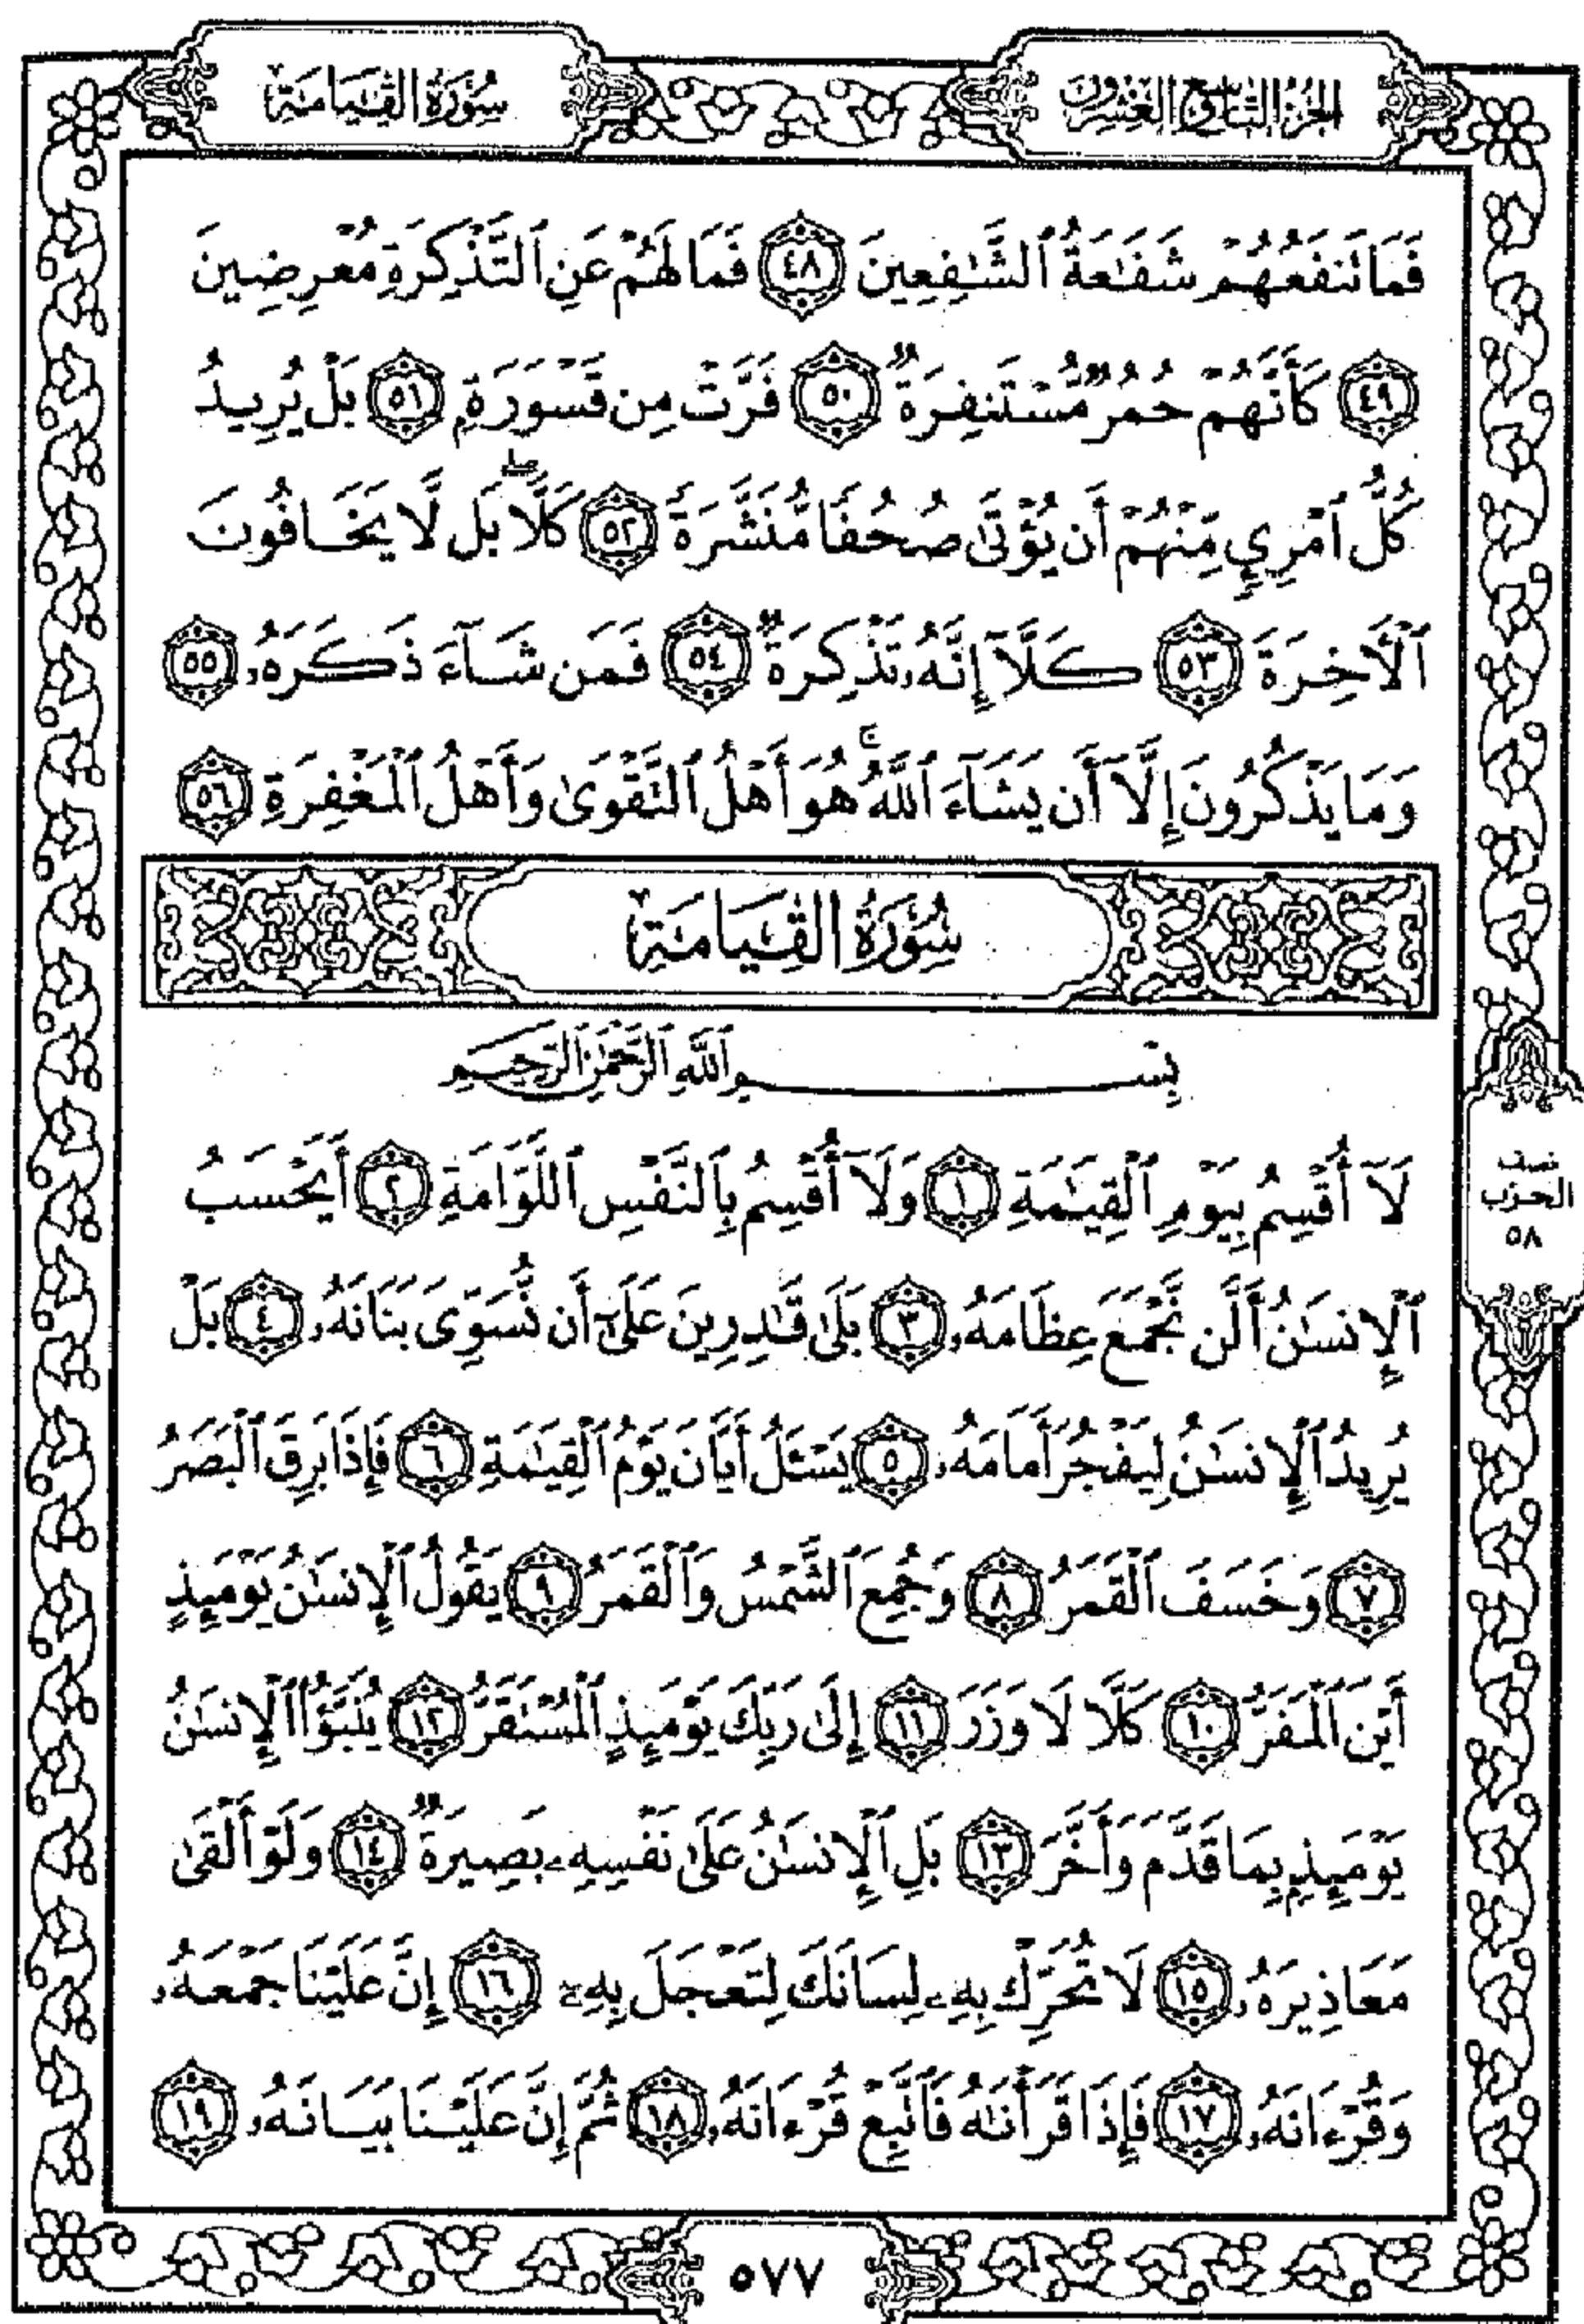 الجزء التاسع والعشرون
سورة القيامة
فَمَا تَنفَعُهُمْ شَفَٰعَةُ ٱلشَّٰفِعِينَ ٤٨ فَمَا لَهُمْ عَنِ ٱلتَّذْكِرَةِ مُعْرِضِينَ
٤٩ كَأَنَّهُمْ حُمُرٌ مُّسْتَنفِرَةٌ ٥٠ فَرَّتْ مِن قَسْوَرَةٍۭ ٥١ بَلْ يُرِيدُ
كُلُّ ٱمْرِئٍ مِّنْهُمْ أَن يُؤْتَىٰ صُحُفًا مُّنَشَّرَةً ٥٢ كَلَّاۖ بَل لَّا يَخَافُونَ
ٱلْأَخِرَةَ ٥٣ كَلَّآ إِنَّهُۥ تَذْكِرَةٌ ٥٤ فَمَن شَآءَ ذَكَرَهُۥ ٥٥
وَمَا يَذْكُرُونَ إِلَّآ أَن يَشَآءَ ٱللَّهُۚ هُوَ أَهْلُ ٱلتَّقْوَىٰ وَأَهْلُ ٱلْمَغْفِرَةِ ٥٦
سُورَةُ القِيَامَةِ
بِسْمِ ٱللَّهِ ٱلرَّحْمَٰنِ ٱلرَّحِيمِ
لَآ أُقْسِمُ بِيَوْمِ ٱلْقِيَٰمَةِ ١ وَلَآ أُقْسِمُ بِٱلنَّفْسِ ٱللَّوَّامَةِ ٢ أَيَحْسَبُ
ٱلْإِنسَٰنُ أَلَّن نَّجْمَعَ عِظَامَهُۥ ٣ بَلَىٰ قَٰدِرِينَ عَلَىٰٓ أَن نُّسَوِّىَ بَنَانَهُۥ ٤ بَلْ
يُرِيدُ ٱلْإِنسَٰنُ لِيَفْجُرَ أَمَامَهُۥ ٥ يَسْـَٔلُ أَيَّانَ يَوْمُ ٱلْقِيَٰمَةِ ٦ فَإِذَا بَرِقَ ٱلْبَصَرُ
٧ وَخَسَفَ ٱلْقَمَرُ ٨ وَجُمِعَ ٱلشَّمْسُ وَٱلْقَمَرُ ٩ يَقُولُ ٱلْإِنسَٰنُ يَوْمَئِذٍ
أَيْنَ ٱلْمَفَرُّ ١٠ كَلَّا لَا وَزَرَ ١١ إِلَىٰ رَبِّكَ يَوْمَئِذٍ ٱلْمُسْتَقَرُّ ١٢ يُنَبَّؤُا۟ ٱلْإِنسَٰنُ
يَوْمَئِذٍۭ بِمَا قَدَّمَ وَأَخَّرَ ١٣ بَلِ ٱلْإِنسَٰنُ عَلَىٰ نَفْسِهِۦ بَصِيرَةٌ ١٤ وَلَوْ أَلْقَىٰ
مَعَاذِيرَهُۥ ١٥ لَا تُحَرِّكْ بِهِۦ لِسَانَكَ لِتَعْجَلَ بِهِۦٓ ١٦ إِنَّ عَلَيْنَا جَمْعَهُۥ
وَقُرْءَانَهُۥ ١٧ فَإِذَا قَرَأْنَٰهُ فَٱتَّبِعْ قُرْءَانَهُۥ ١٨ ثُمَّ إِنَّ عَلَيْنَا بَيَانَهُۥ ١٩
نصف
الحزب
٥٨
٥٧٧